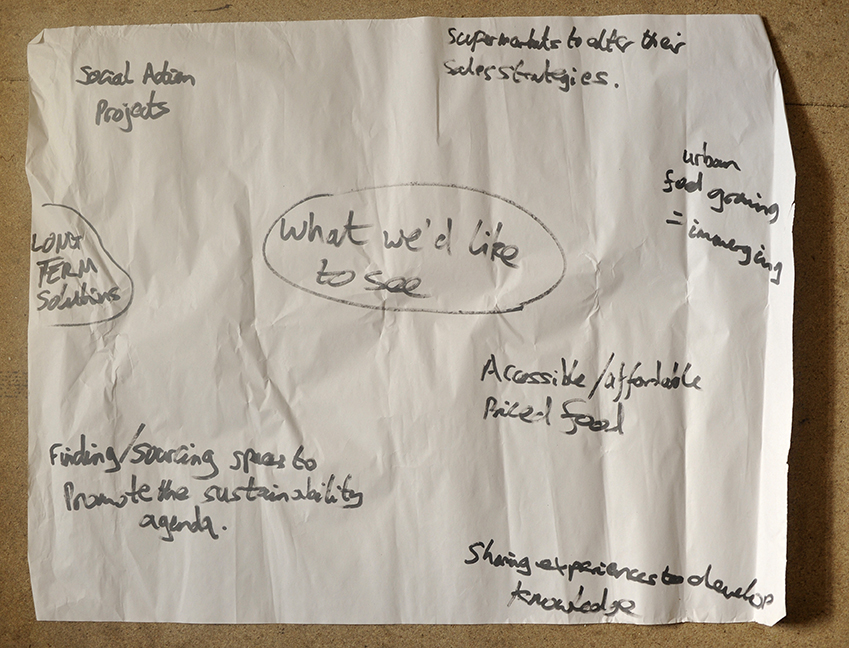 Social Action
Projects
Supermarkets to alter their
sales strategies.
urban
food growing
= immerging
LONG
TERM
Solutions
What we'd like
to see
Accessible/affordable
Priced food
Finding/sourcing spaces to
Promote the sustainability
agenda.
Sharing experiences to develop
knowledge